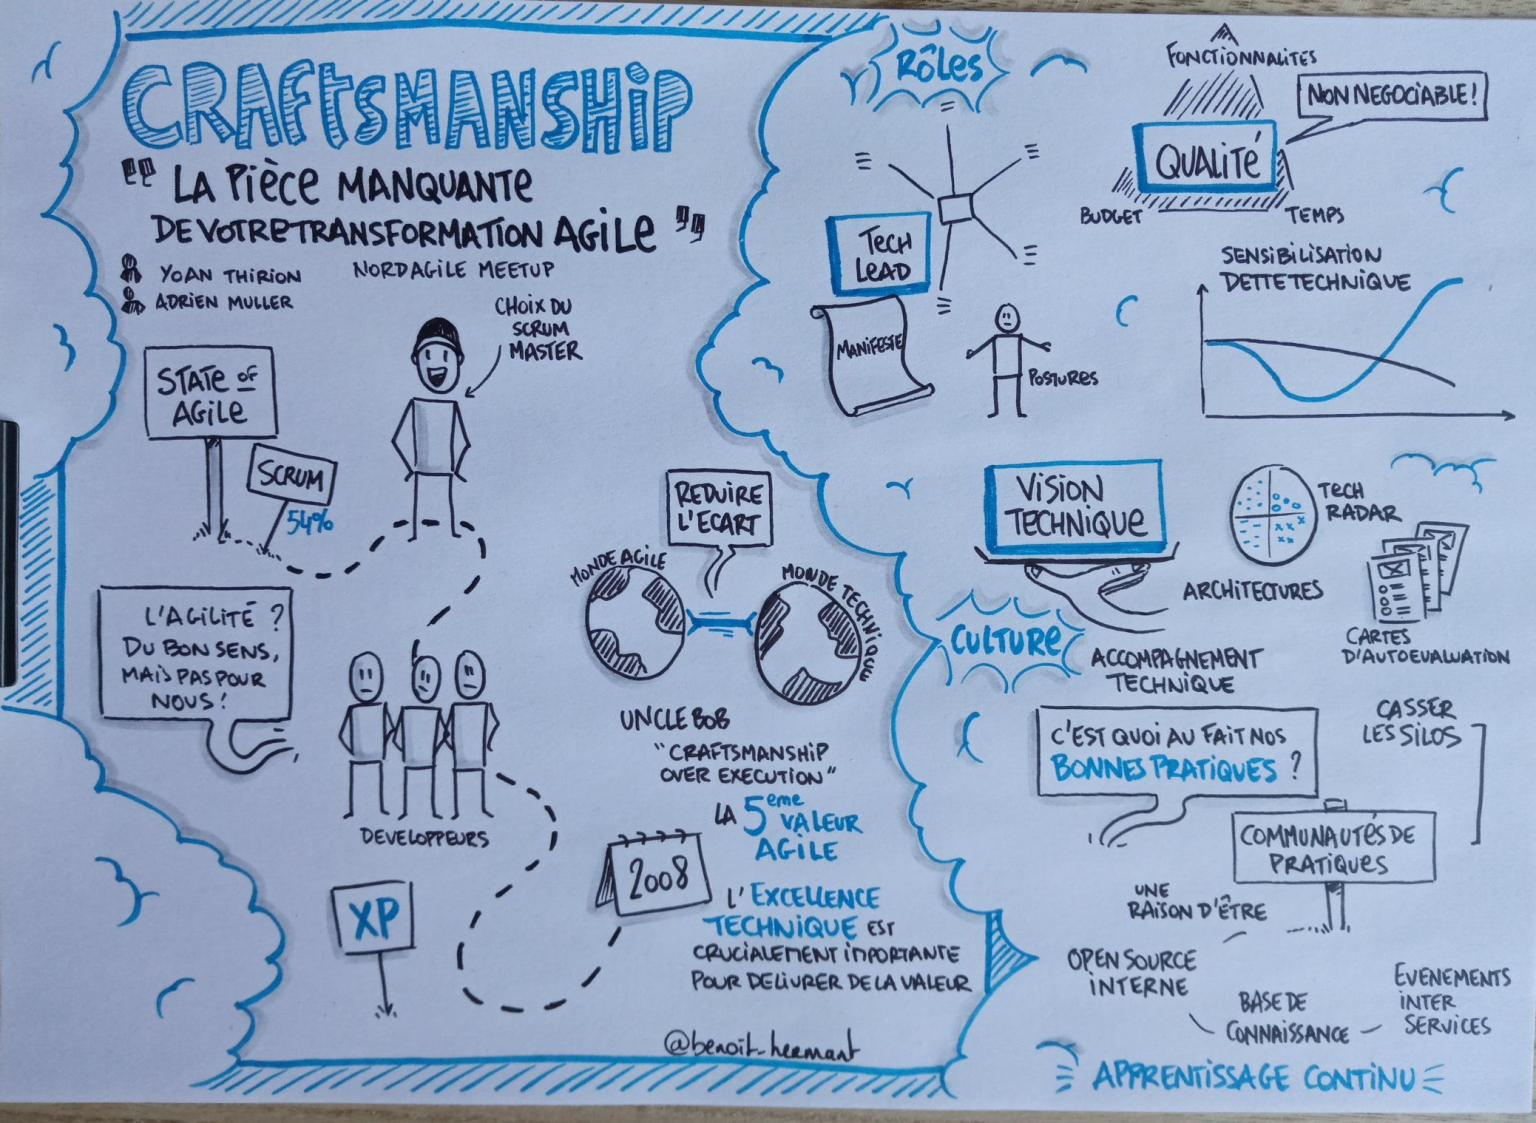 CRAFTSMANSHIP
" LA PIÈCE MANQUANTE
DE VOTRE TRANSFORMATION AGILE "
YOAN THIRION
ADRIEN MULLER
NORDAGILE MEETUP
CHOIX DU
SCRUM
MASTER
STATE OF
AGILE
SCRUM
54%
L'AGILITÉ ?
DU BON SENS,
MAIS PAS POUR
NOUS !
DEVELOPPEURS
XP
REDUIRE
L'ECART
MONDE AGILE
MONDE TECHNIQUE
UNCLE BOB
"CRAFTSMANSHIP
OVER EXECUTION"
LA 5eme
VALEUR
AGILE
2008
L'EXCELLENCE
TECHNIQUE EST
CRUCIALEMENT IMPORTANTE
POUR DELIVRER DE LA VALEUR
@benoit_heemant
RÔLES
TECH
LEAD
MANIFESTE
POSTURES
FONCTIONNALITÉS
NON NEGOCIABLE !
QUALITÉ
BUDGET
TEMPS
SENSIBILISATION
DETTE TECHNIQUE
VISION
TECHNIQUE
TECH
RADAR
ARCHITECTURES
CARTES
D'AUTOEVALUATION
CULTURE
ACCOMPAGNEMENT
TECHNIQUE
C'EST QUOI AU FAIT NOS
BONNES PRATIQUES ?
CASSER
LES SILOS
COMMUNAUTÉS DE
PRATIQUES
UNE
RAISON D'ÊTRE
OPEN SOURCE
INTERNE
BASE DE
CONNAISSANCE
EVENEMENTS
INTER
SERVICES
APPRENTISSAGE CONTINU